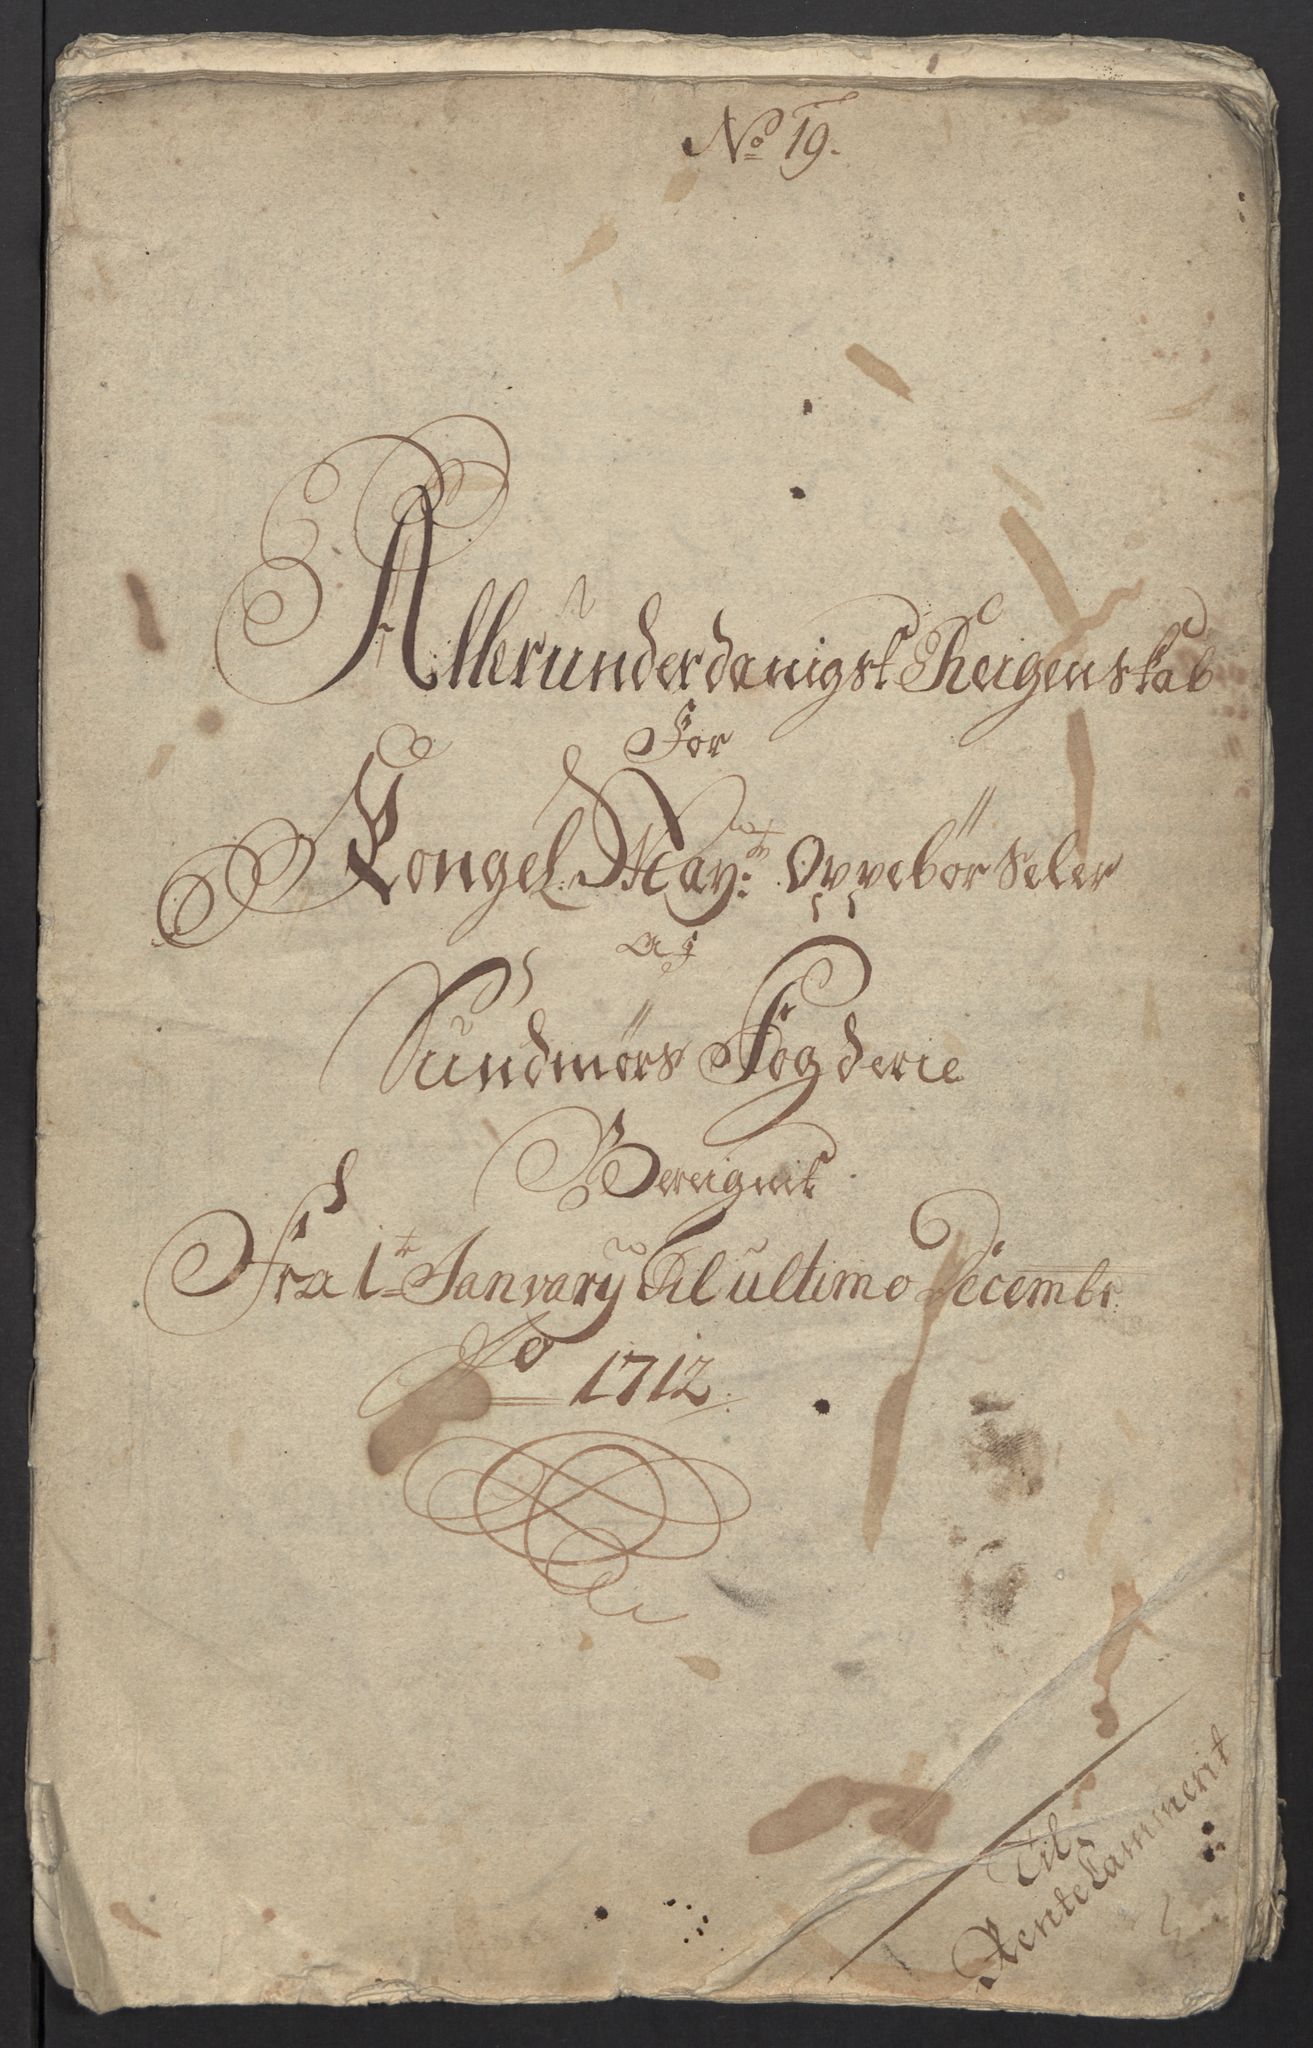 No 19.
Allerunderdanigst Reigenskab
For
Kongel. May:ts Oppebörseler
Af
Sundmörs Fogderie
Bereignit
Fra 1t January Til ultimo Decembr.
Ao 1712.
Til
Rentekammerit